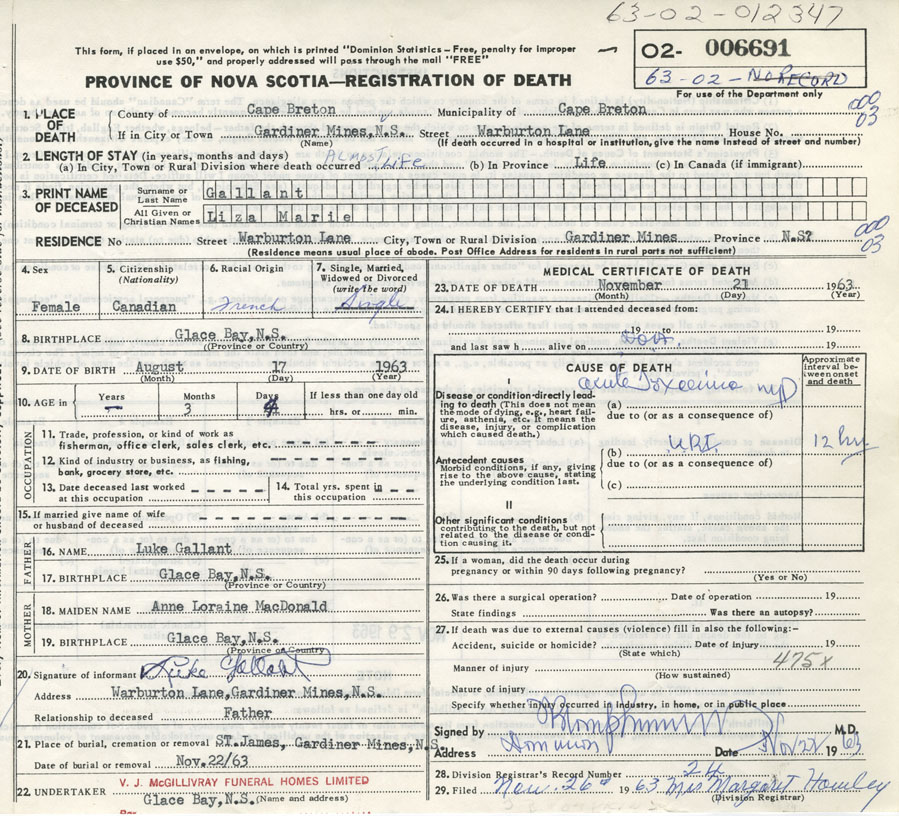 63-02-012347
This form, if placed in an envelope, on which is printed "Dominion Statistics—Free, penalty for improper
use $50," and properly addressed will pass through the mail "FREE"
02- 006691
63-02-NO RECORD
For use of the Department only
PROVINCE OF NOVA SCOTIA—REGISTRATION OF DEATH
1. PLACE OF DEATH
County of Cape Breton Municipality of Cape Breton
000
03
If in City or Town Gardiner Mines,N.S. Street Warburton Lane House No.
(Name) (If death occurred in a hospital or institution, give the name instead of street and number)
2. LENGTH OF STAY (in years, months and days)
(a) In City, Town or Rural Division where death occurred Almost Life (b) In Province Life (c) In Canada (if immigrant)
3. PRINT NAME OF DECEASED
Surname or Last Name Gallant
All Given or Christian Names Liza Marie
RESIDENCE No Street Warburton Lane City, Town or Rural Division Gardiner Mines Province N.S?
000
03
(Residence means usual place of abode. Post Office Address for residents in rural parts not sufficient)
4. Sex
Female
5. Citizenship (Nationality)
Canadian
6. Racial Origin
French
7. Single, Married, Widowed or Divorced (write the word)
Single
8. BIRTHPLACE Glace Bay,N.S.
(Province or Country)
9. DATE OF BIRTH August 17 1963
(Month) (Day) (Year)
10. AGE in Years Months Days If less than one day old
- 3 4 hrs. or min.
OCCUPATION
11. Trade, profession, or kind of work as
fisherman, office clerk, sales clerk, etc.
12. Kind of industry or business, as fishing,
bank, grocery store, etc.
13. Date deceased last worked
at this occupation
14. Total yrs. spent in
this occupation
15. If married give name of wife
or husband of deceased
FATHER
16. NAME Luke Gallant
17. BIRTHPLACE Glace Bay,N.S.
(Province or Country)
MOTHER
18. MAIDEN NAME Anne Loraine MacDonald
19. BIRTHPLACE Glace Bay,N.S.
(Province or Country)
20. Signature of informant Luke Gallant
Address Warburton Lane,Gardiner Mines,N.S.
Relationship to deceased Father
21. Place of burial, cremation or removal ST.James, Gardiner Mines,N.S.
Date of burial or removal Nov.22/63
V. J. McGILLIVRAY FUNERAL HOMES LIMITED
22. UNDERTAKER Glace Bay,N.S. (Name and address)
MEDICAL CERTIFICATE OF DEATH
23. DATE OF DEATH November 21 1963
(Month) (Day) (Year)
24. I HEREBY CERTIFY that I attended deceased from:
19 to 19
and last saw h alive on DOA 19
CAUSE OF DEATH
Approximate interval between onset and death
I
Disease or condition directly leading to death (This does not mean the mode of dying, e.g., heart failure, asthenia, etc. It means the disease, injury, or complication which caused death.)
(a) acute Toxaemia
due to (or as a consequence of)
Antecedent causes
Morbid conditions, if any, giving rise to the above cause, stating the underlying condition last.
(b) URI 12 hrs
due to (or as a consequence of)
(c)
II
Other significant conditions
contributing to the death, but not related to the disease or condition causing it.
25. If a woman, did the death occur during
pregnancy or within 90 days following pregnancy?
(Yes or No)
26. Was there a surgical operation? Date of operation 19
State findings Was there an autopsy?
27. If death was due to external causes (violence) fill in also the following:—
Accident, suicide or homicide? Date of injury 19
(State which)
475x
Manner of injury
(How sustained)
Nature of injury
Specify whether injury occurred in industry, in home, or in public place
Signed by M.D.
Address Dominion Date Nov 22 1963
28. Division Registrar's Record Number 24
29. Filed Nov. 26th 1963 Mrs Margaret Howley
(Division Registrar)